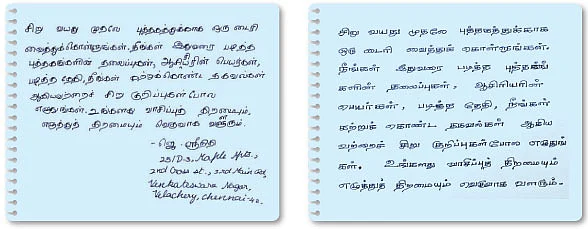 சிறு வயது முதலே புத்தகத்துக்காக ஒரு டைரி
வைத்துக்கொள்ளுங்கள். நீங்கள் இதுவரை படித்த
புத்தகங்களின் தலைப்புகள், ஆசிரியரின் பெயர்கள்,
படித்த தேதி, நீங்கள் கற்றுக்கொண்ட தகவல்கள்
ஆகியவற்றைச் சிறு குறிப்புகள்போல
எழுதுங்கள். உங்களது வாசிப்புத் திறமையும்,
எழுத்துத் திறமையும் வெகுவாக வளரும்.
- ஜெ. ஸ்ரீநிதி
25/D-3, Maple Apts.,
2nd Cross st., 3rd Main Rd,
Venkateswara Nagar,
Velachery, Chennai-42.
சிறு வயது முதலே புத்தகத்துக்காக
ஒரு டைரி வைத்துக் கொள்ளுங்கள்.
நீங்கள் இதுவரை படித்த புத்தகங்
களின் தலைப்புகள், ஆசிரியரின்
பெயர்கள், படித்த தேதி, நீங்கள்
கற்றுக் கொண்ட தகவல்கள் ஆகிய
வற்றைச் சிறு குறிப்புகள்போல எழுதுங்
கள். உங்களது வாசிப்புத் திறமையும்
எழுத்துத் திறமையும் வெகுவாக வளரும்.